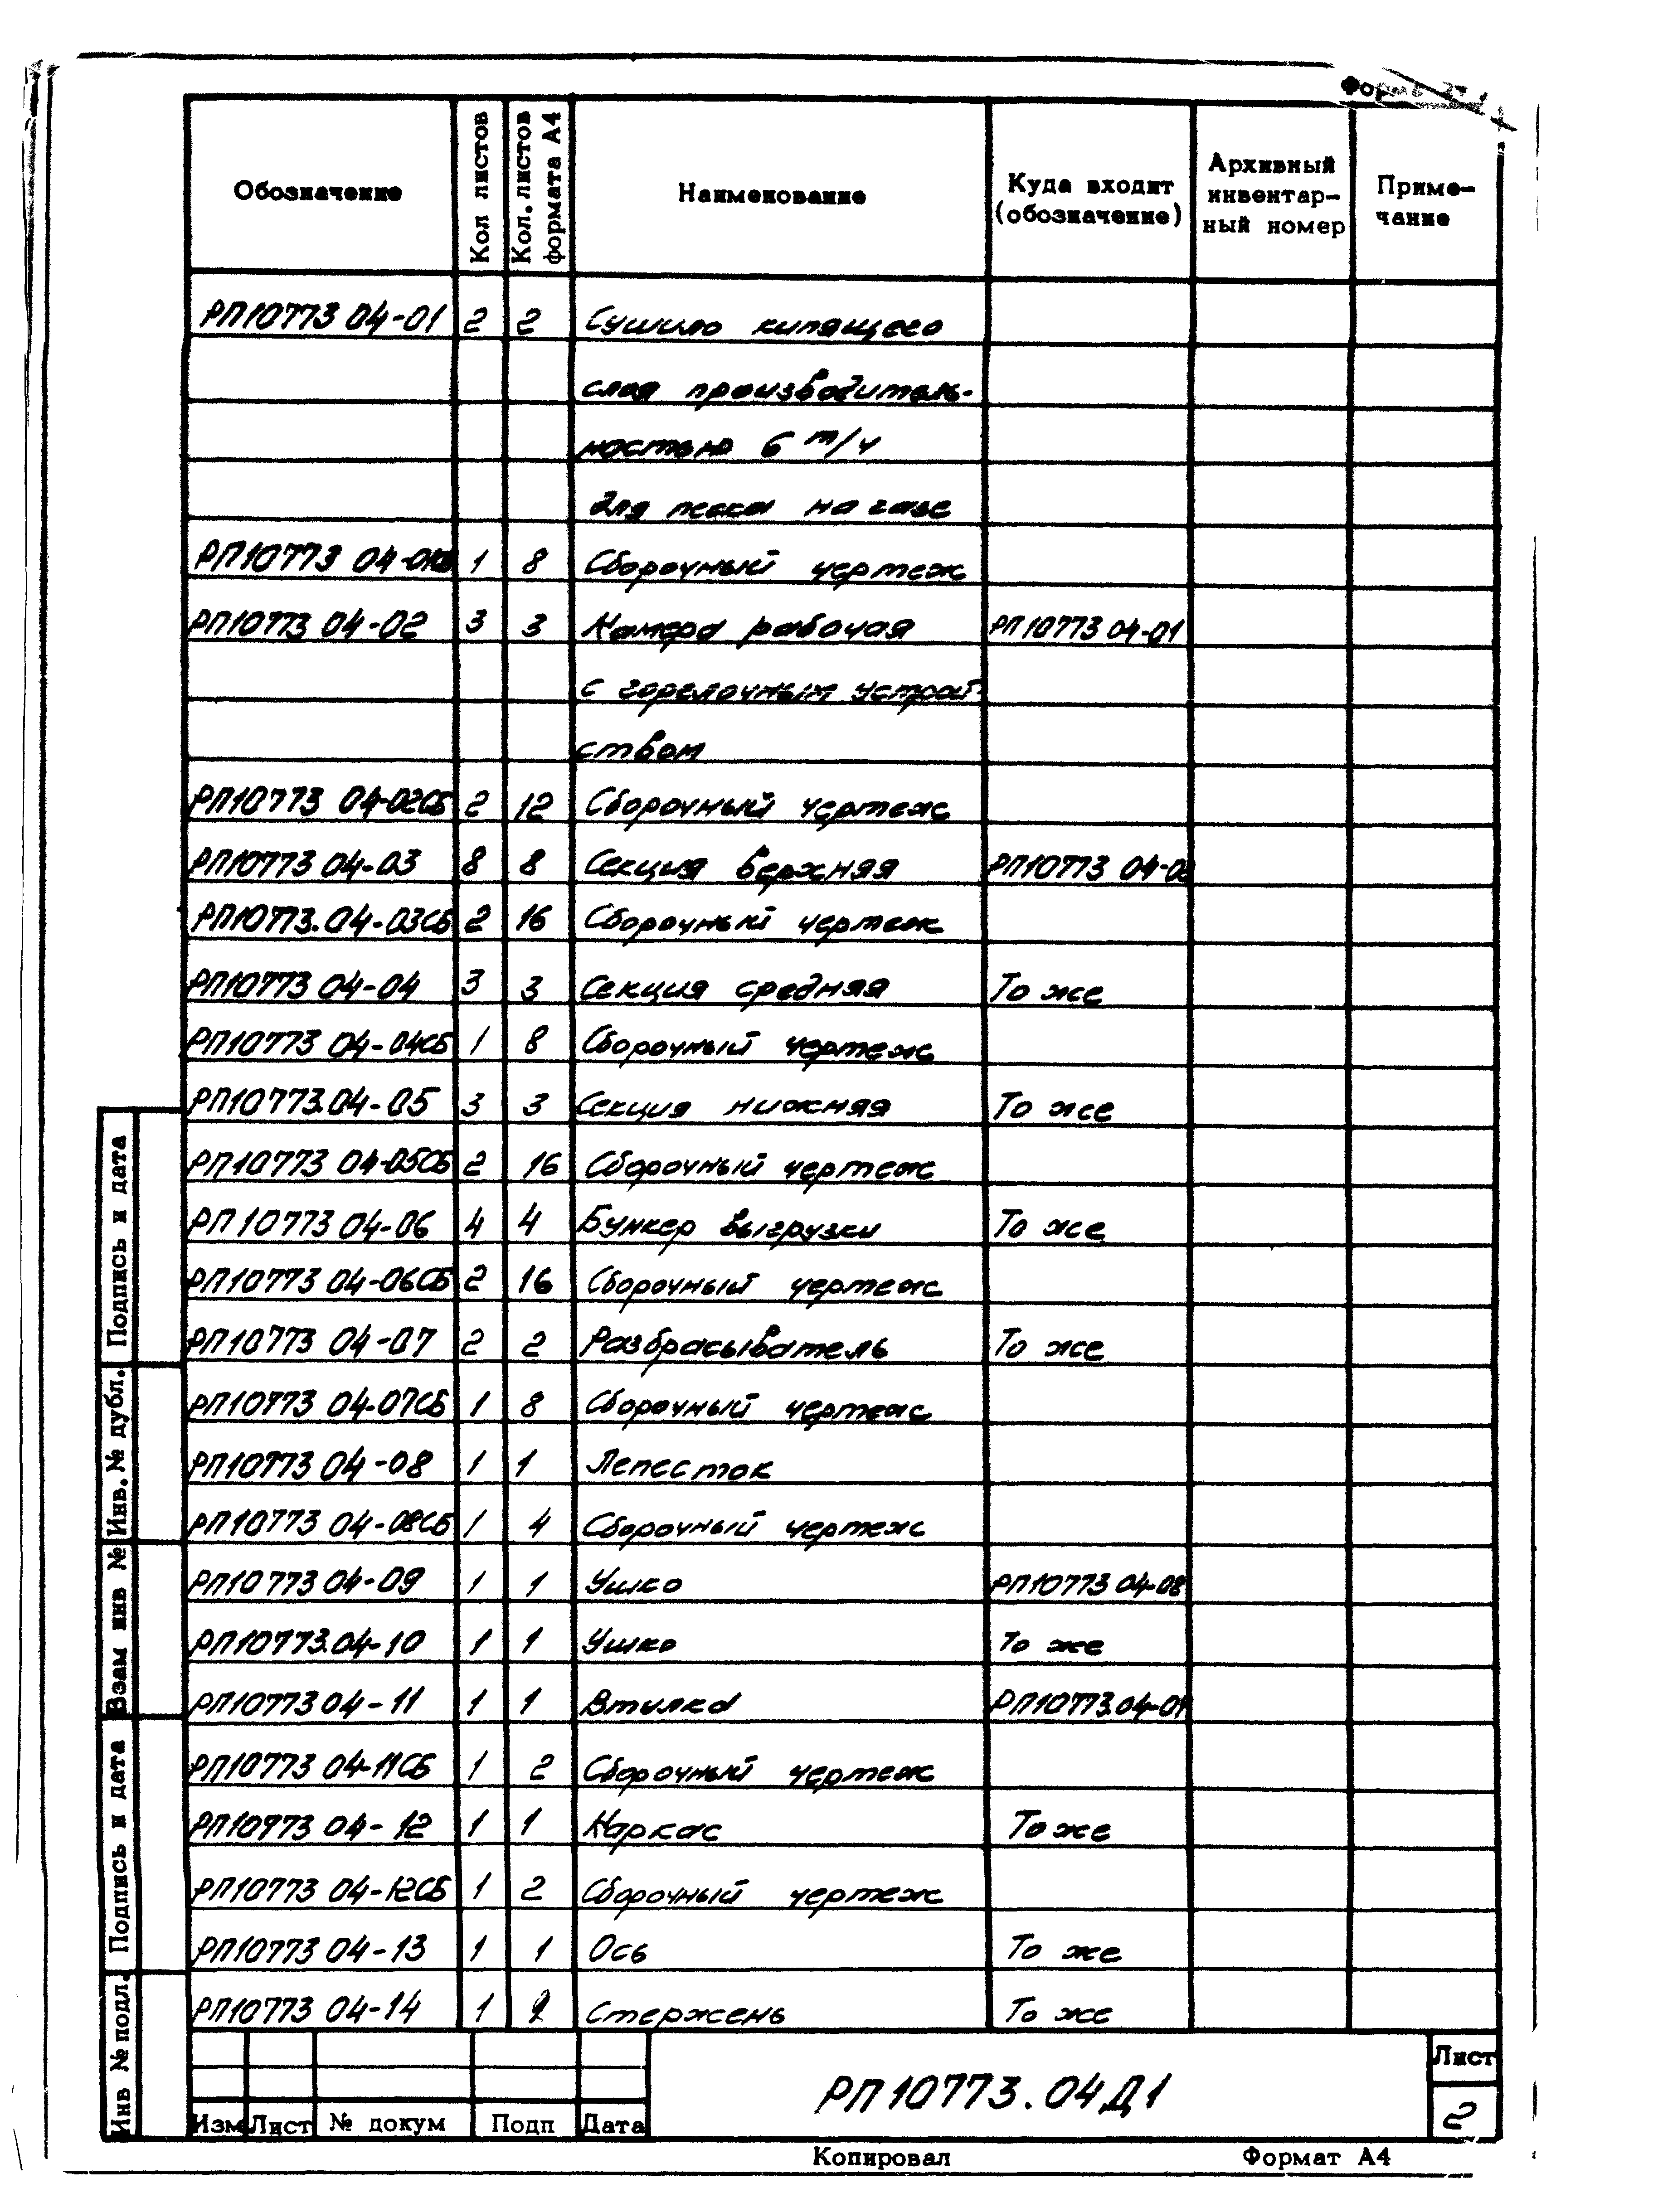 Форма
Обозначение | Кол листов | Кол. листов формата А4 | Наименование | Куда входит (обозначение) | Архивный инвентар-ный номер | Приме-чание
РП10773 04-01 2 2 Сушило кипящего
слоя производитель-
ностью 6 т/ч
для песка на газе
РП10773 04-01СБ 1 8 Сборочный чертеж
РП10773 04-02 3 3 Камера рабочая РП10773 04-01
с горелочным устрой-
ством
РП10773 04-02СБ 2 12 Сборочный чертеж
РП10773 04-03 8 8 Секция верхняя РП10773 04-02
РП10773.04-03СБ 2 16 Сборочный чертеж
РП10773 04-04 3 3 Секция средняя То же
РП10773 04-04СБ 1 8 Сборочный чертеж
РП10773.04-05 3 3 Секция нижняя То же
РП10773 04-05СБ 2 16 Сборочный чертеж
РП10773 04-06 4 4 Бункер выгрузки То же
РП10773 04-06СБ 2 16 Сборочный чертеж
РП10773 04-07 2 2 Разбрасыватель То же
РП10773 04-07СБ 1 8 Сборочный чертеж
РП10773 04-08 1 1 Лепесток
РП10773 04-08СБ 1 4 Сборочный чертеж
РП10773 04-09 1 1 Ушко РП10773 04-08
РП10773.04-10 1 1 Ушко То же
РП10773 04-11 1 1 Втулка
РП10773 04-11СБ 1 2 Сборочный чертеж
РП10773 04-12 1 1 Каркас То же
РП10773 04-12СБ 1 2 Сборочный чертеж
РП10773 04-13 1 1 Ось То же
РП10773 04-14 1 Стержень То же
Подпись и дата
Инв. № дубл.
Взам инв №
Подпись и дата
Инв № подл.
Изм Лист № докум Подп Дата
РП10773.04Д1
Лист
2
Копировал Формат А4